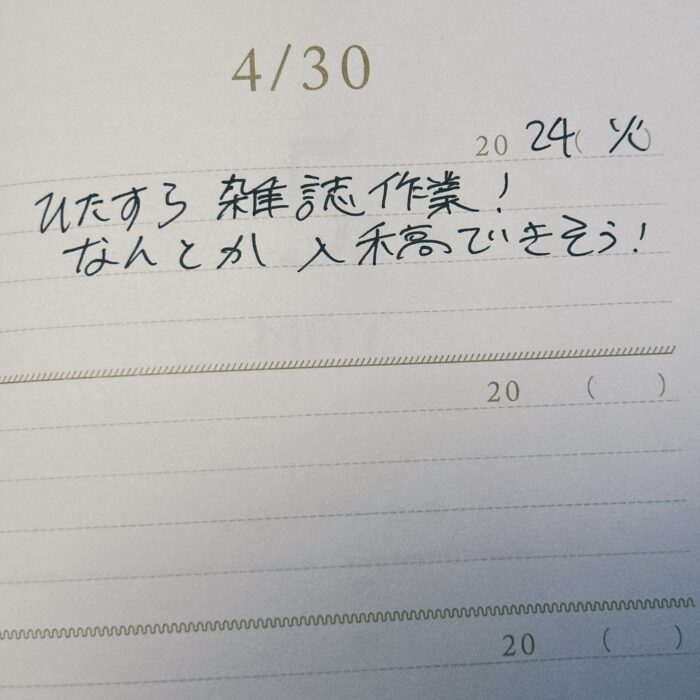 4/30
20 24(火)
ひたすら 雑誌作業!
なんとか 入稿できそう!
20 ( )
20 ( )